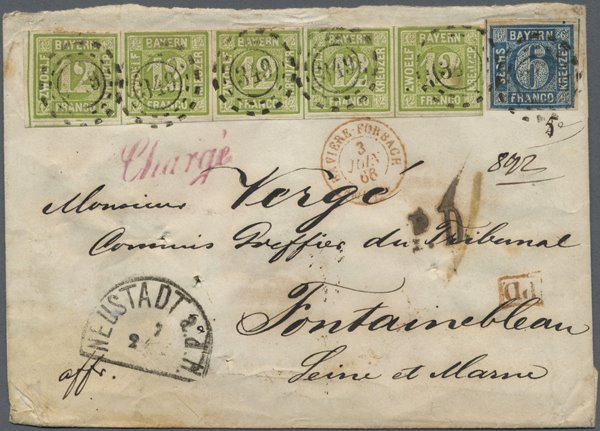 BAYERN ZWOELF 12 KREUZER FRANCO
BAYERN ZWOELF 12 KREUZER FRANCO 349
BAYERN ZWOELF 12 KREUZER FRANCO 349
BAYERN ZWOELF 12 KREUZER FRANCO 349
BAYERN ZWOELF 12 KREUZER FRANCO
BAYERN SECHS 6 KREUZER FRANCO
Chargé
BAVIERE-FORBACH
3
JUIN
66
892
Monsieur Vergé
Commis Greffier du Tribunal
P.D.
NEUSTADT a.d.H.
Fontainebleau
affr.
Seine et Marne